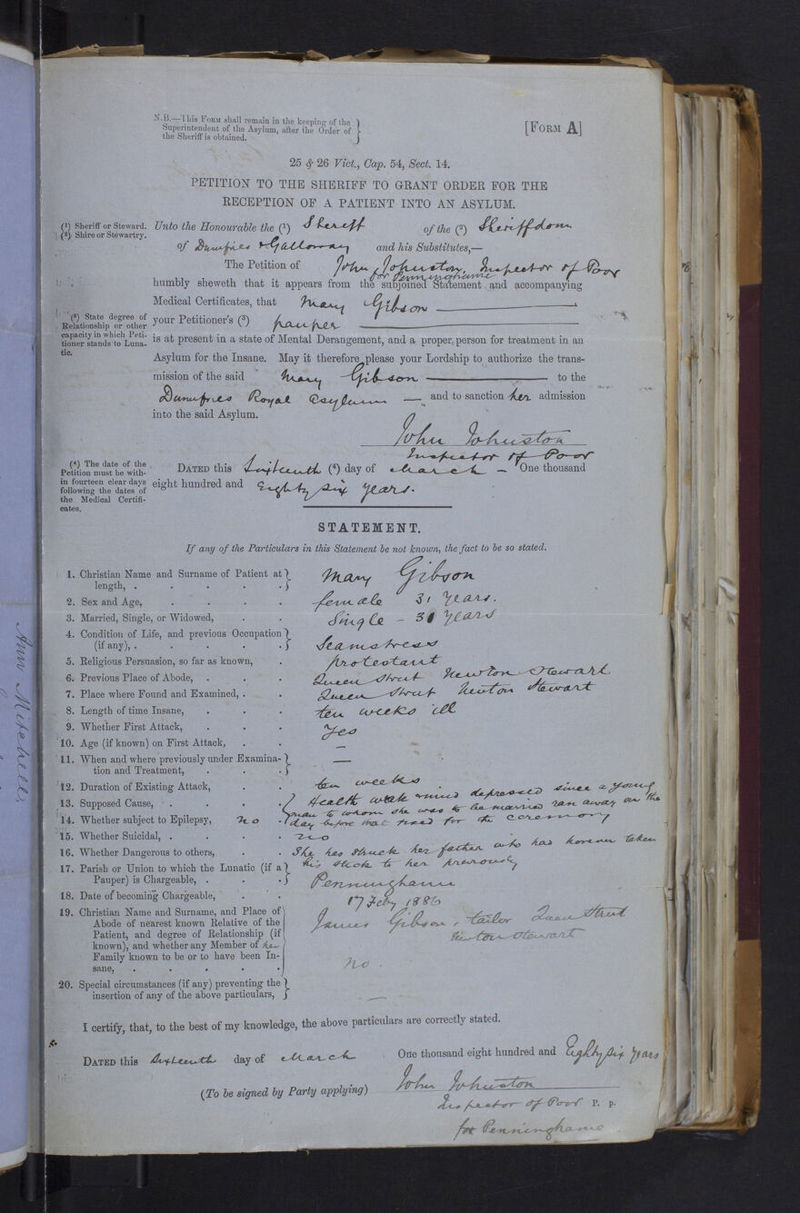 N.B.—This Form shall remain in the keeping of the
Superintendent of the Asylum, after the Order of
the Sheriff is obtained.
[Form A]
25 & 26 Vict., Cap. 54, Sect. 14.
PETITION TO THE SHERIFF TO GRANT ORDER FOR THE
RECEPTION OF A PATIENT INTO AN ASYLUM.
(1) Sheriff or Steward.
(2) Shire or Stewartry.
Unto the Honourable the (1) Sheriff of the (2) Sheriffdom
of Dumfries & Galloway and his Substitutes,—
The Petition of John Johnston, Inspector of Poor
for Penninghame
humbly sheweth that it appears from the subjoined Statement and accompanying
Medical Certificates, that Mary Gibson
(3) State degree of
Relationship or other
capacity in which Peti-
tioner stands to Luna-
tic.
your Petitioner's (3) pauper
is at present in a state of Mental Derangement, and a proper person for treatment in an
Asylum for the Insane. May it therefore please your Lordship to authorize the trans-
mission of the said Mary Gibson to the
Dumfries Royal Asylum — and to sanction her admission
into the said Asylum.
John Johnston
Inspector of Poor
(4) The date of the
Petition must be with-
in fourteen clear days
following the dates of
the Medical Certifi-
cates.
DATED this Sixteenth (4) day of March — One thousand
eight hundred and Eighty six years.
STATEMENT.
If any of the Particulars in this Statement be not known, the fact to be so stated.
1. Christian Name and Surname of Patient at
length, . . . . . Mary Gibson
2. Sex and Age, . . . . female 31 Years.
3. Married, Single, or Widowed, . . Single - 31 Years
4. Condition of Life, and previous Occupation
(if any), . . . . . Seamstress
5. Religious Persuasion, so far as known, . protestant
6. Previous Place of Abode, . . . Queen Street Newton Stewart
7. Place where Found and Examined, . . Queen Street Newton Stewart
8. Length of time Insane, . . . ten weeks ill
9. Whether First Attack, . . . Yes
10. Age (if known) on First Attack, . . —
11. When and where previously under Examina-
tion and Treatment, . . . —
12. Duration of Existing Attack, . . ten weeks
13. Supposed Cause, . . . . Health weak mind depressed since a young
man to whom she was to be married ran away on the
14. Whether subject to Epilepsy, no . day before that fixed for the ceremony
15. Whether Suicidal, . . . . no
16. Whether Dangerous to others, . . She has struck her father who has however taken
his stick to her previously
17. Parish or Union to which the Lunatic (if a
Pauper) is Chargeable, . . . Penninghame
18. Date of becoming Chargeable, . . 17 Feby 1886
19. Christian Name and Surname, and Place of
Abode of nearest known Relative of the
Patient, and degree of Relationship (if
known), and whether any Member of her
Family known to be or to have been In-
sane, . . . . .
James Gibson, tailor Queen Street
Newton Stewart
No.
20. Special circumstances (if any) preventing the
insertion of any of the above particulars, —
I certify, that, to the best of my knowledge, the above particulars are correctly stated.
DATED this Sixteenth day of March One thousand eight hundred and Eighty six years
(To be signed by Party applying) John Johnston
Inspector of Poor P. p.
for Penninghame
Ann Mitchell